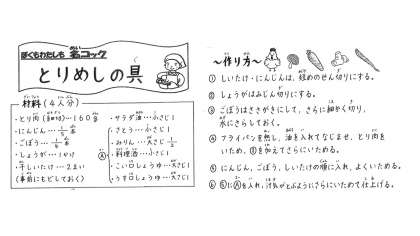 ぼくもわたしも 名コック
とりめしの具
材料(4人分)
・とり肉(細切り)…160g
・にんじん…
・ごぼう…
・しょうが…1かけ
・干ししいたけ…2まい
(事前にもどしておく)
・サラダ油…小さじ1
・さとう…小さじ1
・みりん…大さじ
・料理酒…大さじ1
・こい口しょうゆ…大さじ1
・うす口しょうゆ…大さじ1
Ⓐ
〜作り方〜
① しいたけ・にんじんは、短めのせん切りにする。
② しょうがはみじん切りにする。
③ ごぼうはささがきにして、さらに細かく切り、
水にさらしておく。
④ フライパンを熱し、油を入れてなじませ、とり肉を
いため、②を加えてさらにいためる。
⑤ にんじん、ごぼう、しいたけの順に入れ、よくいためる。
⑥ ⑤にⒶを入れ、汁気がとぶようにさらにいためて仕上げる。